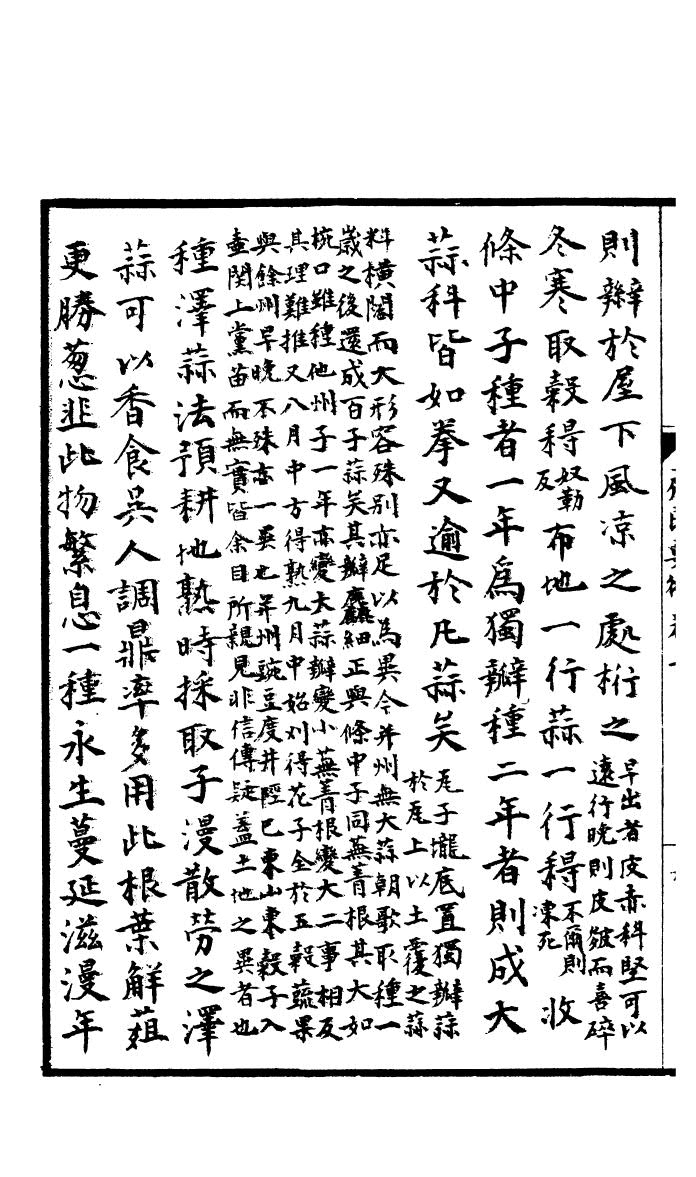 則辮於屋下風凉之處桁之早出者皮赤科堅可以遠行晚則皮皴而喜碎
冬寒取穀䅵奴勒反布地一行蒜一行䅵不爾則凍死收
條中子種者一年爲獨瓣種二年者則成大
蒜科皆如拳又逾於凡蒜矣瓦子壠底置獨瓣蒜於瓦上以土覆之蒜
料横闊而大形容殊别亦足以爲異今并州無大蒜朝歌取種一
歲之後還成百子蒜矣其瓣麤細正與條中子同蕪菁根其大如
椀口雖種他州子一年亦變大蒜瓣變小蕪菁根變大二事相反
其理難推又八月中方得熟九月中始刈得花子全於五穀蔬果
與餘州早晚不殊亦一異也并州豌豆度井陘已東山東穀子入
壷關上黨苗而無實皆余目所親見非信傳疑蓋土地之異者也
種澤蒜法預耕地熟時採取子漫散勞之澤
蒜可以香食吳人調鼎率多用此根葉解葅
更勝葱韭此物繁息一種永生蔓延滋漫年